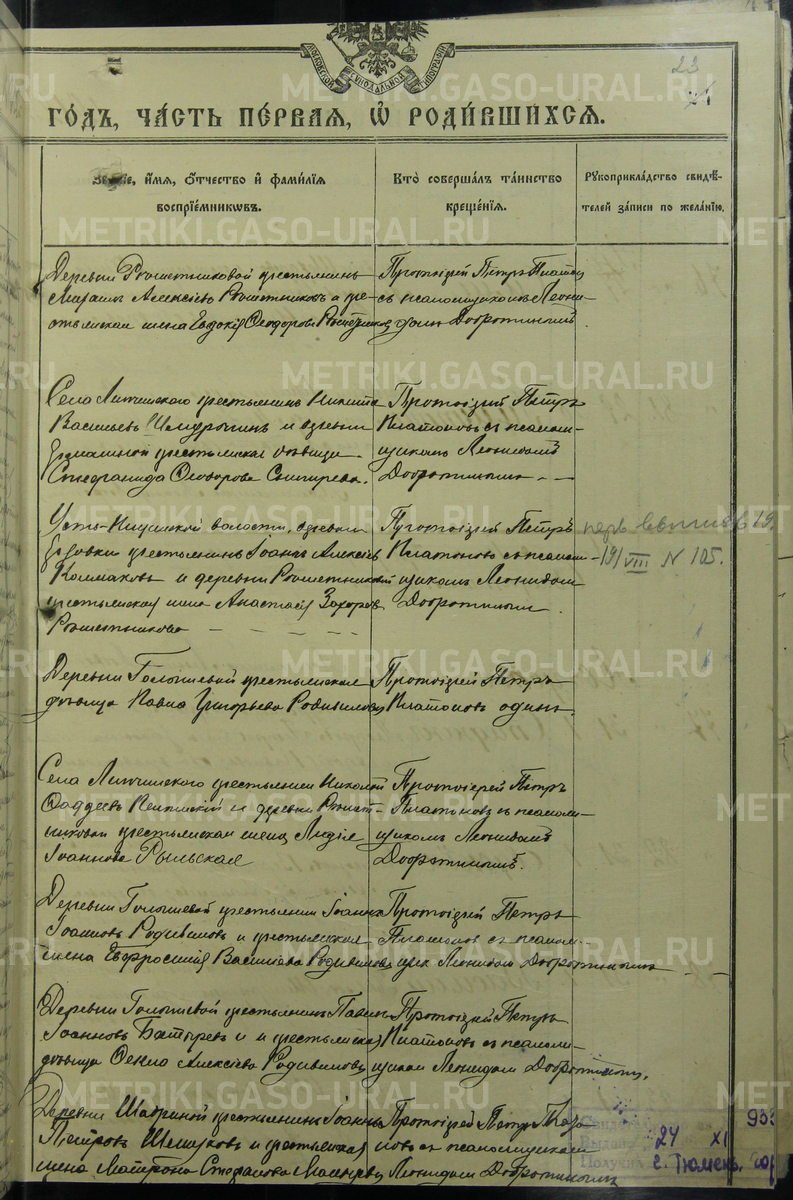 МОСКОВСКОЙ СИНОДАЛЬНОЙ ТИПОГРАФІИ
23
METRIKI.GASO-URAL.RU
ГО́ДЪ, ЧА́СТЬ ПЕ́РВАЯ, Ѽ РОДИ́ВШИХСЯ.
и́мя, ѻ҆́тчество и҆ фамі́лїя
воспрїе́мникѡвъ.
Кто̀ соверша́лъ та́инство
креще́нїя.
Рꙋкоприкла́дство свидѣ́-
телей за́писи по жела́нїю.
Деревни Рѣшетниковой крестьянинъ
Алексіевъ Рѣшетниковъ и кре-
стьянская жена Евдокія Ѳеодорова
Протоіерей Петръ Платоно
въ съ псаломщикомъ Леони-
домъ Добротинымъ
Села Липчинскаго крестьянинъ Никита
Васильевъ и деревни
крестьянская дѣвица
Стефанида Ѳеодорова Снигирева.
Протоіерей Петръ
Платоновъ съ псалом-
щикомъ Леонидомъ
Добротинымъ
Усть-Ницинской волости, деревни
крестьянинъ Іоаннъ Алексіевъ
Колмаковъ и деревни Рѣшетниковой
крестьянская жена Анастасія Захарова
Рѣшетникова
Протоіерей Петръ
Платоновъ съ псалом-
щикомъ Леонидомъ
Добротинымъ
19
191 VIII N 105.
Деревни Голышевой крестьянская
дѣвица Павла Григорьева Родивилова
Протоіерей Петръ
Платоновъ одинъ.
Села Липчинскаго крестьянинъ Николай
Ѳаддеевъ и деревни Рѣшет-
никовой крестьянская жена Лидія
Іоаннова Рыльская
Протоіерей Петръ
Платоновъ съ псалом-
щикомъ Леонидомъ
Добротинымъ.
Деревни Голышевой крестьянинъ Іоаннъ
Іоанновъ Родивиловъ и крестьянская
жена Евфросинія Василіева Родивилова
Протоіерей Петръ
Платоновъ съ псалом-
щик Леонидом Добротинымъ
Деревни Голышевой крестьянинъ Павелъ
Іоанновъ Батыревъ и крестьянская
дѣвица Ѳекла Алексіева Родивилова
Протоіерей Петръ
Платоновъ съ псалом-
щиком Леонидом Добротинымъ.
Деревни Шабриной крестьянинъ Іоаннъ
Петровъ и крестьянская
жена Матрона Стефанова
Протоіерей Петръ Плато-
новъ съ псаломщикомъ
Леонидомъ Добротинымъ
24 XI 93
г. Тюмень